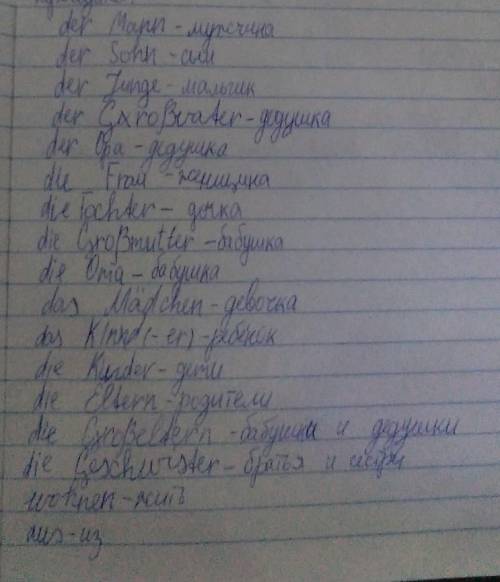 der Mann - мужчина
der Sohn - сын
der Junge - мальчик
der Großvater - дедушка
der Opa - дедушка
die Frau - женщина
die Tochter - дочка
die Großmutter - бабушка
die Oma - бабушка
das Mädchen - девочка
das Kind (-er) - ребёнок
die Kinder - дети
die Eltern - родители
die Großeltern - бабушки и дедушки
die Geschwister - братья и сёстры
wohnen - жить
aus - из